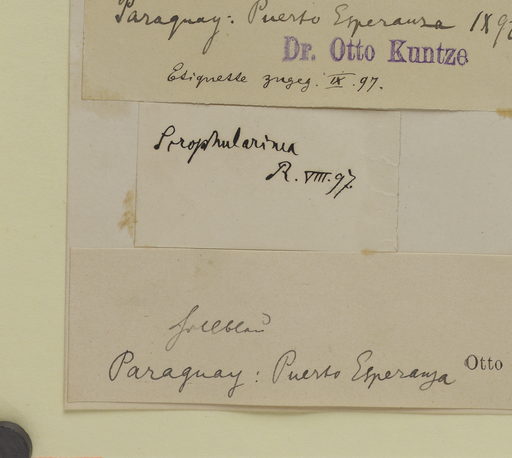 Paraguay: Puerto Esperanza IX 97
Dr. Otto Kuntze
Etiquette zugeg. IX. 97.
Scrophularinea
R. VIII. 97.
hellblau
Paraguay: Puerto Esperanza Otto